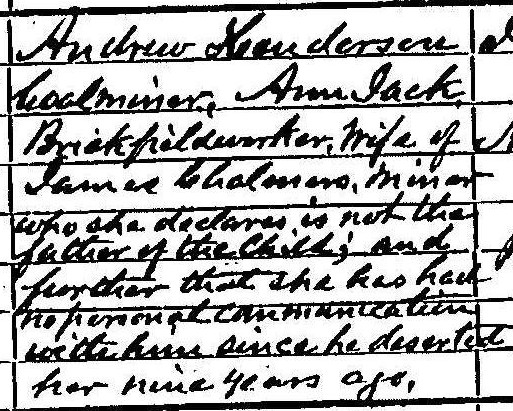 Andrew Henderson
Coalminer, Ann Jack,
Brickfieldworker, Wife of
James Chalmers, Miner
who she declares is not the
father of the Child; and
further that she has had
no personal communication
with him since he deserted
her nine years ago.